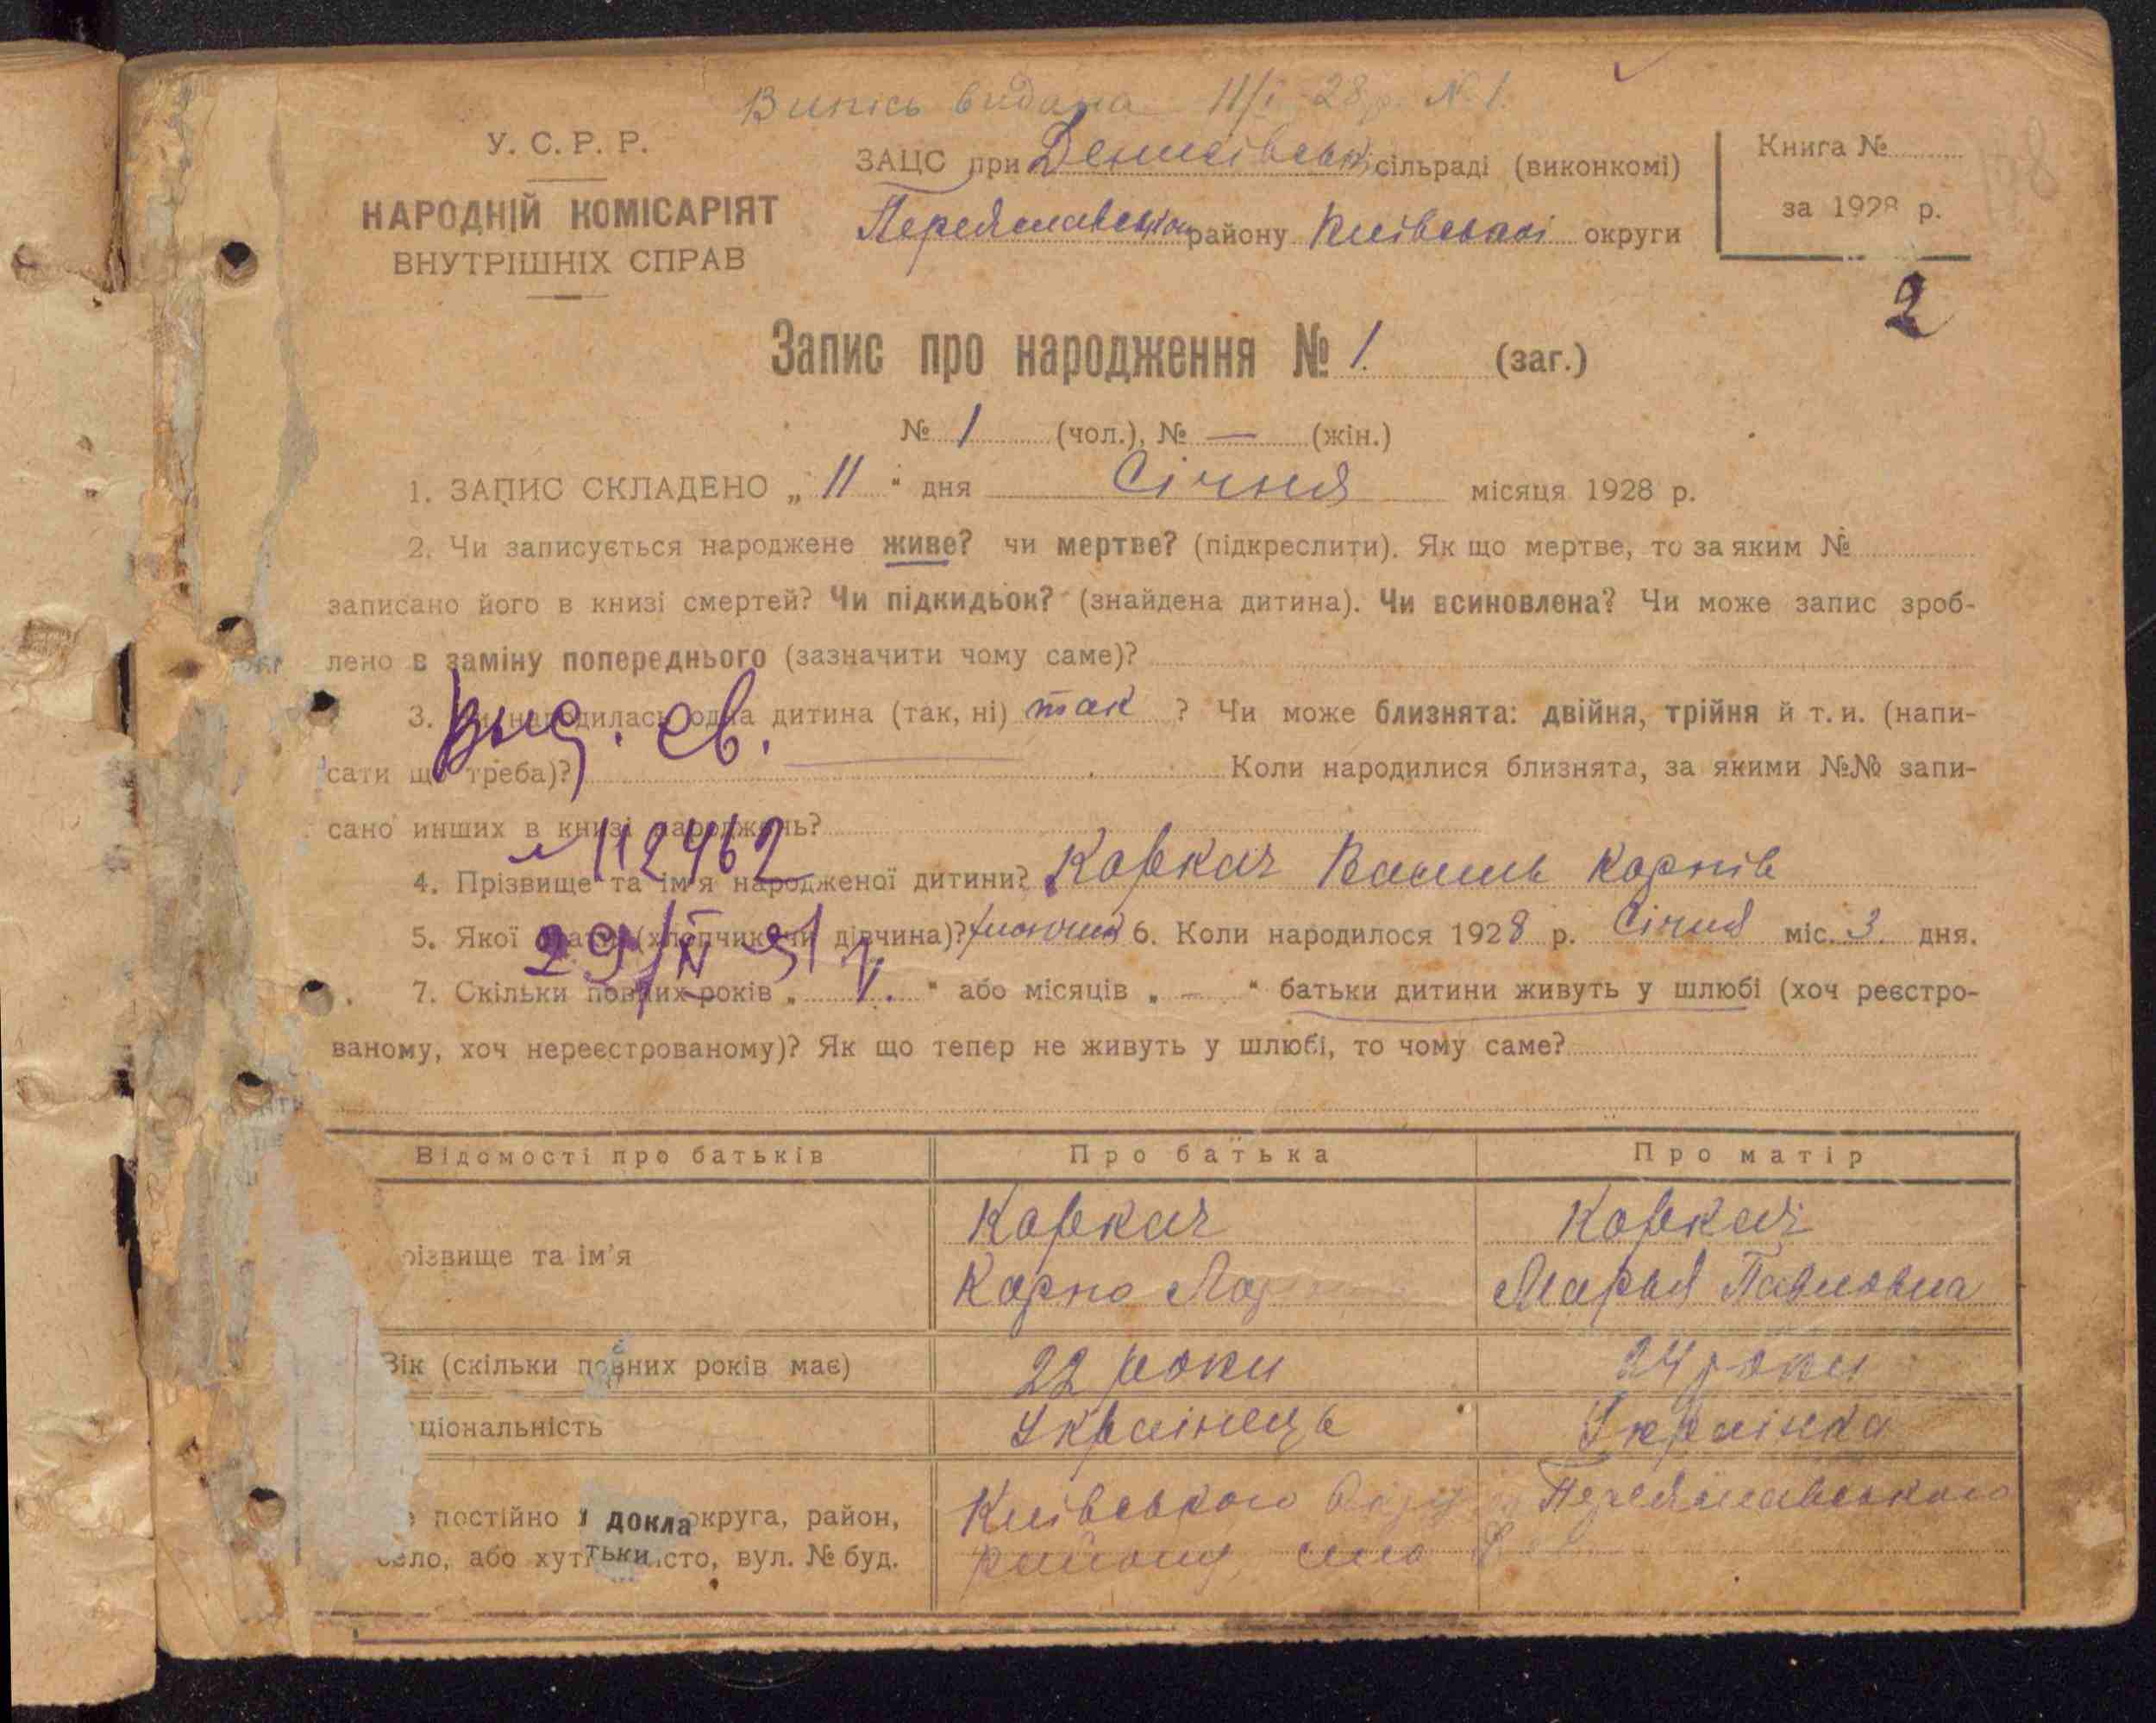 Випись видана 11/I 28 р. № 1.
У. С. Р. Р.
НАРОДНІЙ КОМІСАРІЯТ
ВНУТРІШНІХ СПРАВ
ЗАЦС при сільраді (виконкомі)
району Київської округи
Книга №
за 1928 р.
2
Запис про народження № 1. (заг.)
№ 1 (чол.), № — (жін.)
1. ЗАПИС СКЛАДЕНО „ 11 “ дня Січня місяця 1928 р.
2. Чи записується народжене живе? чи мертве? (підкреслити). Як що мертве, то за яким №
записано його в книзі смертей? Чи підкидьок? (знайдена дитина). Чи всиновлена? Чи може запис зроб-
лено в заміну попереднього (зазначити чому саме)?
3. Чи народилась одна дитина (так, ні) так ? Чи може близнята: двійня, трійня й т. и. (напи-
Выд. св.
сати що треба)? Коли народилися близнята, за якими №№ запи-
сано инших в книзі народжень?
№ 112462
4. Прізвище та ім'я народженої дитини? Кавкач Василь Карпів
5. Якої (хлопчик чи дівчина)? 6. Коли народилося 1928 р. Січня міс. 3. дня.
29/IV 51 р.
7. Скільки повних років „ “ або місяців „ – “ батьки дитини живуть у шлюбі (хоч реєстро-
ваному, хоч нереєстрованому)? Як що тепер не живуть у шлюбі, то чому саме?
Відомості про батьків Про батька Про матір
Кавкач Кавкач
різвище та ім'я
Карпо Марья Павловна
Вік (скільки повних років має) 22 роки 24 роки
ціональність Українець Українка
постійно докла округа, район, Київського Переяславського
село, або хут тьки сто, вул. № буд. району, село